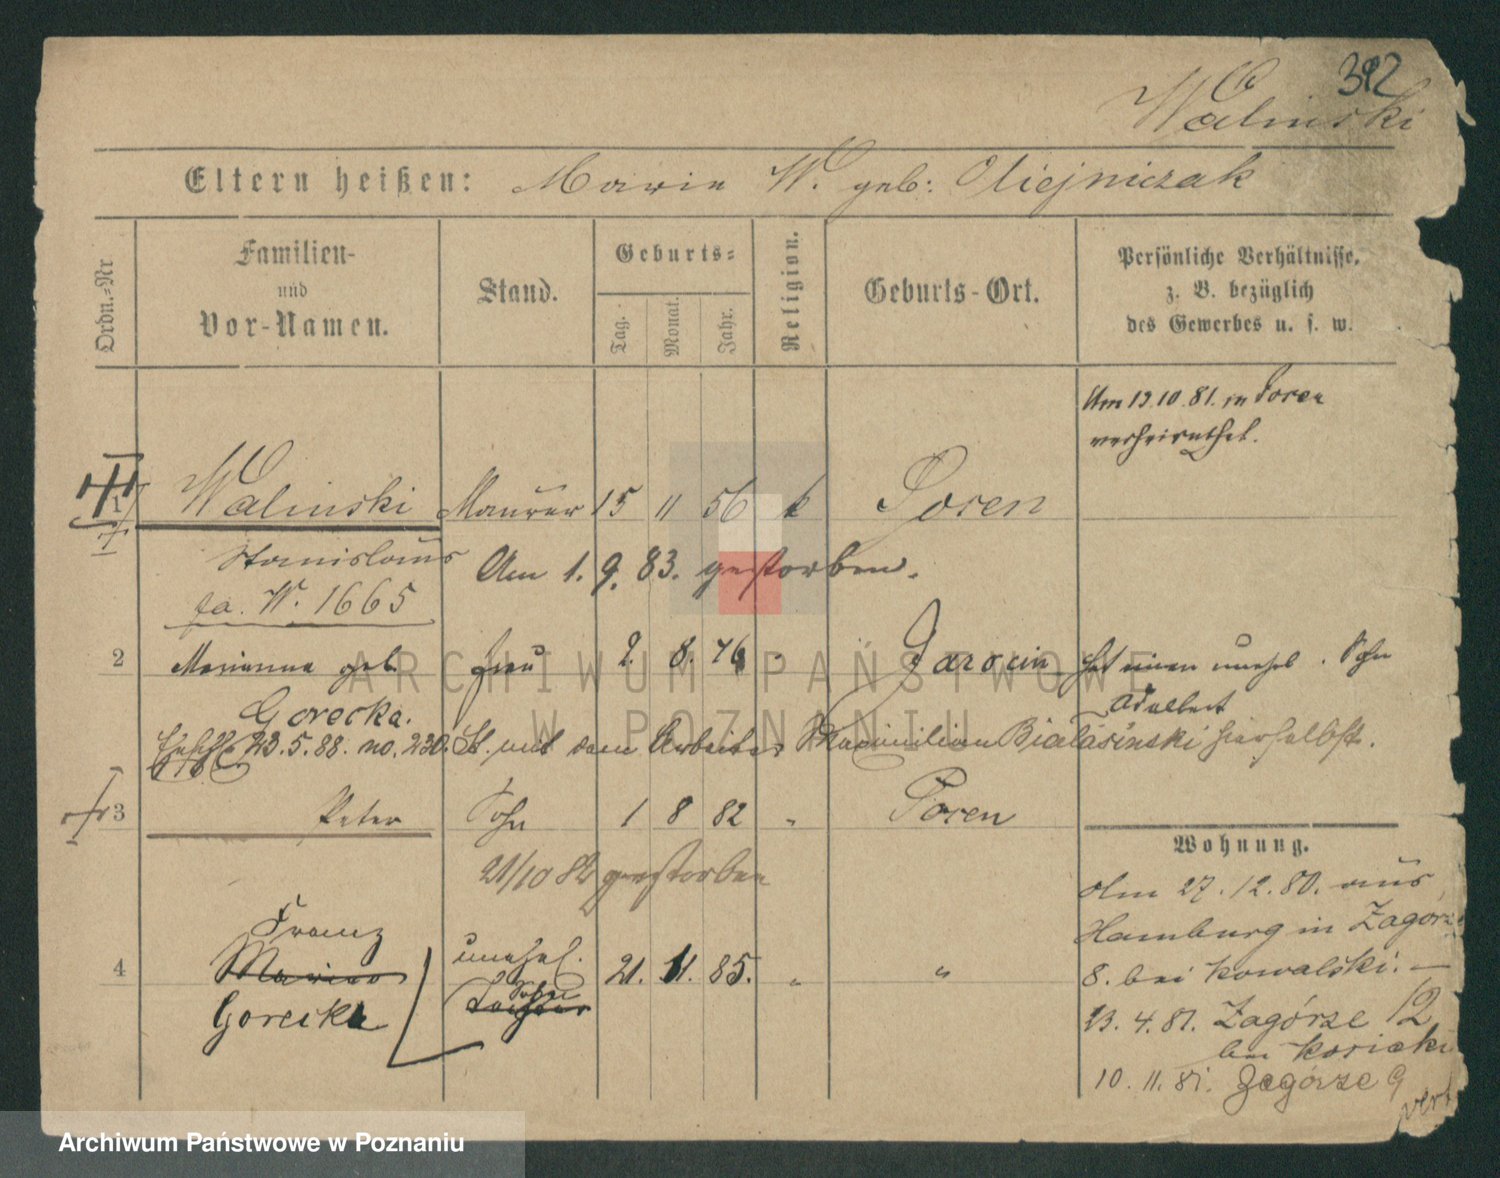 392
Walinski
Eltern heißen: Marie W. geb: Oliejniczak
Ordn.-Nr
Familien-
und
Vor-Namen.
Stand.
Geburts-
Tag.
Monat.
Jahr.
Religion.
Geburts-Ort.
Persönliche Verhältnisse,
z. B. bezüglich
des Gewerbes u. s. w.
Am 13.10.81. in Posen
verheirathet.
1 Walinski Maurer 15 11 56 k Posen
Stanislaus Am 1. 9. 83. gestorben.
fa. W. 1665
2 Marianna geb. Frau 2. 8. Jarocin hat einen unehel. Sohn
Gorecka. Adalbert
23.5.88. no. 230. mit dem Arbeiter Maximilian Bialasinski hierselbst.
3 Peter Sohn 1 8 82 " Posen
21/10 82 gestorben
Wohnung.
Am 27.12.80. aus
Franz Hamburg in Zagorze
4 unehel. 21. 11. 85. " " 8. bei Kowalski. —
Gorecka Sohn 13. 4. 81. Zagórze 12
bei
10. 11. 81. Zagórze 9
vert
ARCHIWUM PAŃSTWOWE
W POZNANIU
Archiwum Państwowe w Poznaniu